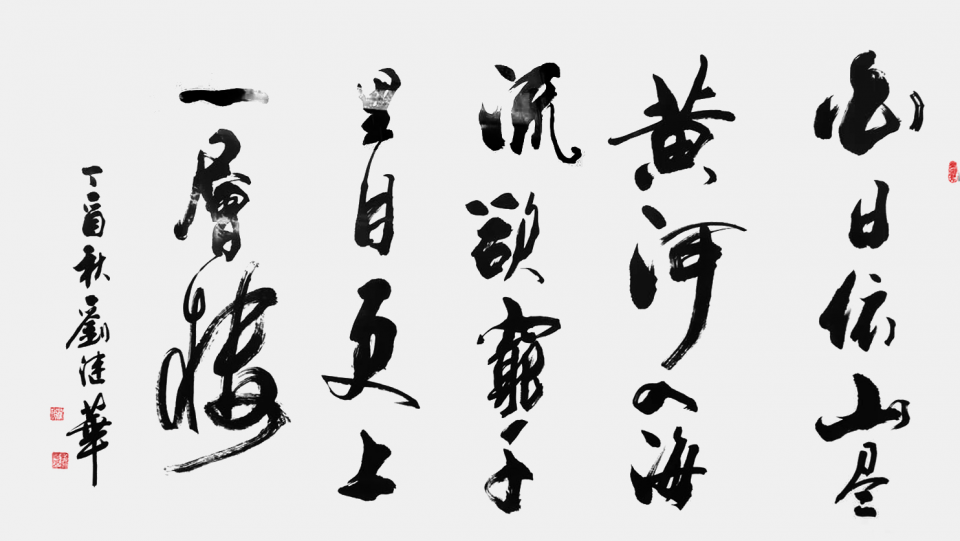 白日依山尽
黄河入海
流欲窮千
里目更上
一層樓
丁酉秋劉華